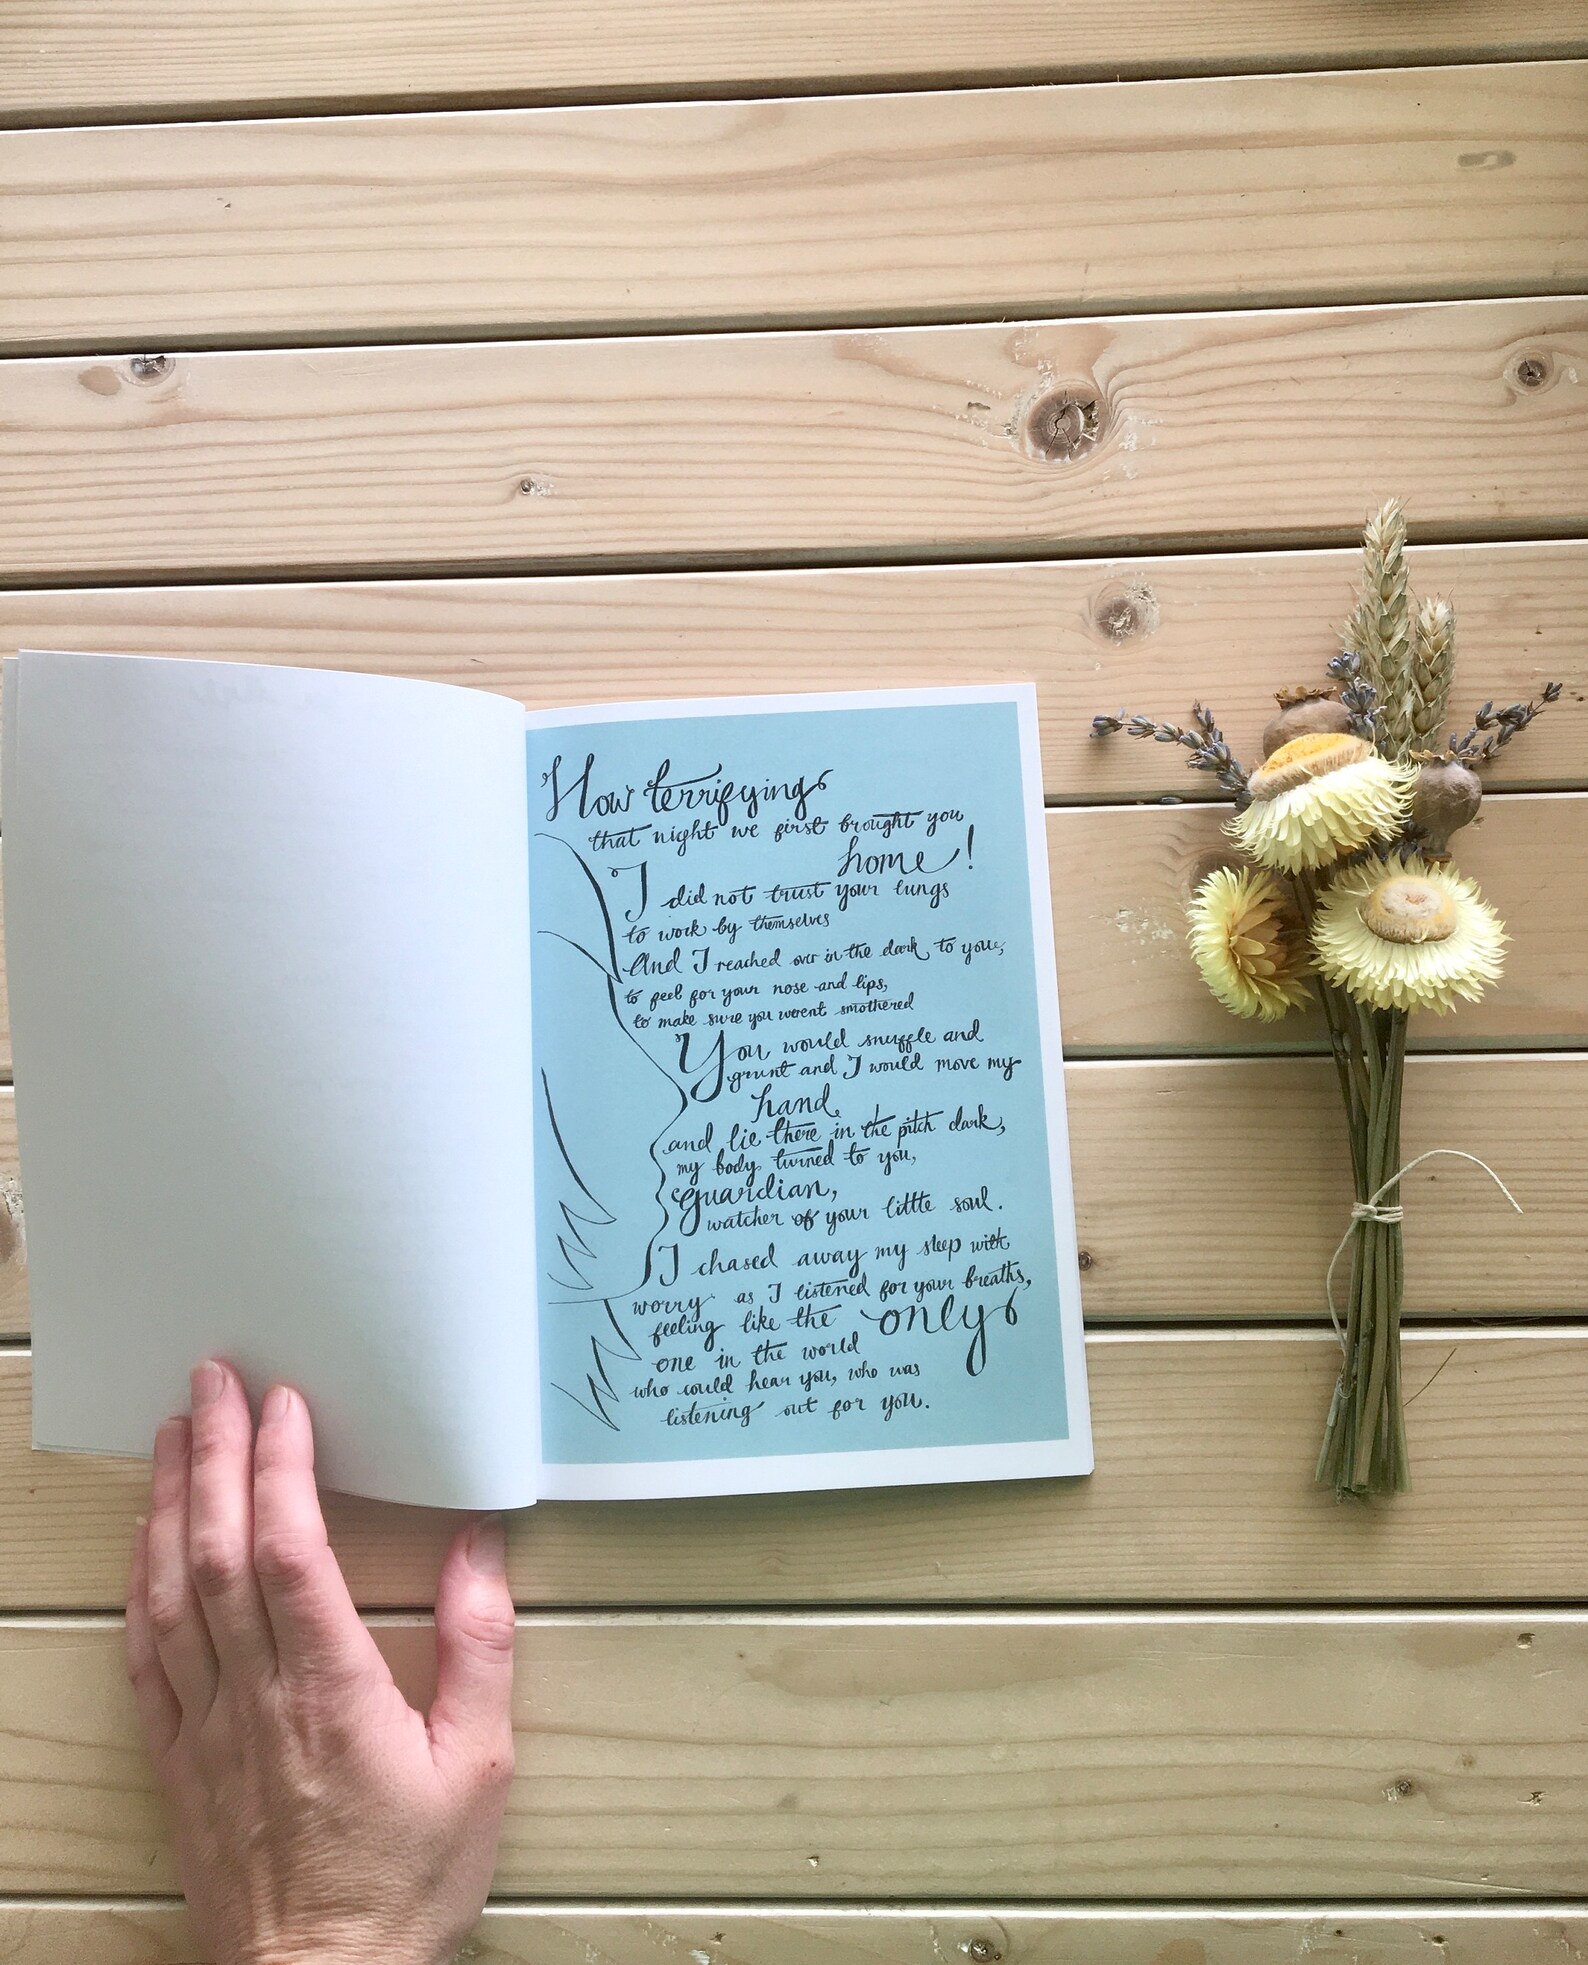 How terrifying
that night we first brought you
home!
I did not trust your lungs
to work by themselves
And I reached over in the dark to you,
to feel for your nose and lips,
to make sure you werent smothered
You would snuffle and
grunt and I would move my
hand,
and lie there in the pitch dark,
my body turned to you,
guardian,
watcher of your little soul.
I chased away my sleep with
worry as I listened for your breaths,
feeling like the only
one in the world
who could hear you, who was
listening out for you.